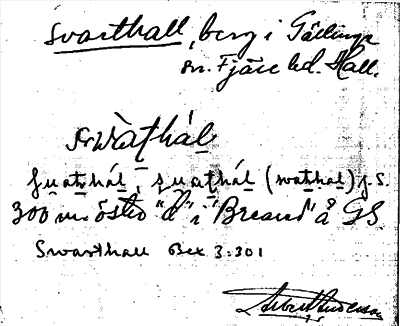 Svarthall, berg i Gällinge
sn. Fjäre hd. Hall.
swàthál
suathál, suathál (swathal) f.S.
300 m. öster "d" i "Breared" å GS.
Svarthall Bex 3:301